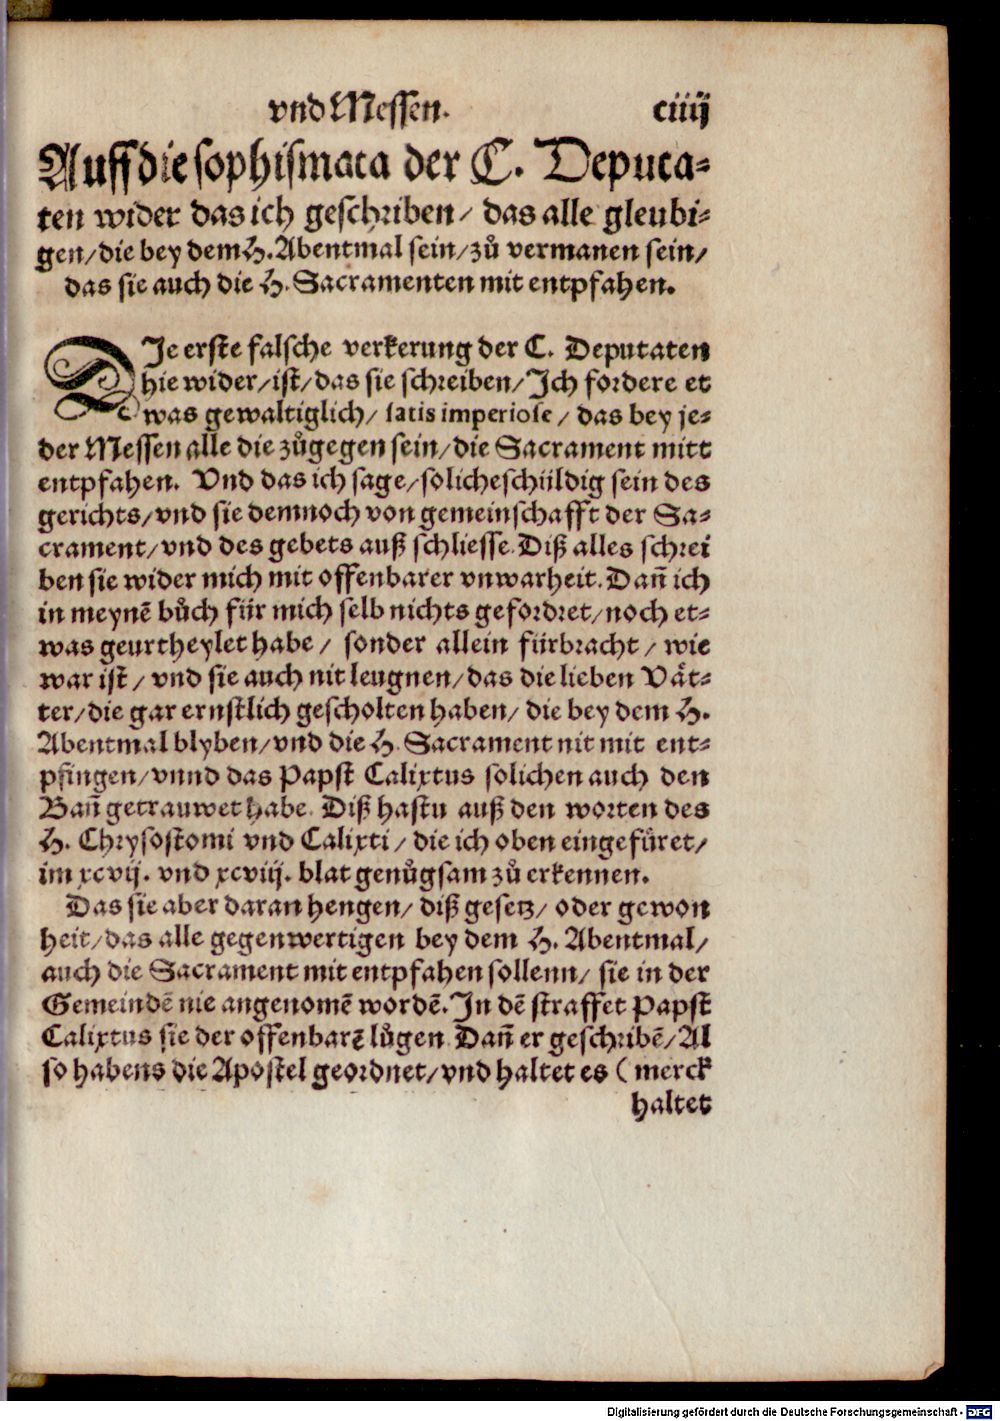 vnd Messen. ciiij
Auff die sophismata der C. Deputa⸗
ten wider das ich geschriben/ das alle gleubi⸗
gen/die bey dem H. Abentmal sein/zů vermanen sein/
das sie auch die H. Sacramenten mit entpfahen.
DIe erste falsche verkerung der C. Deputaten
hie wider/ist/das sie schreiben/Ich fordere et
was gewaltiglich/ satis imperiose/ das bey je⸗
der Messen alle die zůgegen sein/die Sacrament mitt
entpfahen. Vnd das ich sage/soliche schüldig sein des
gerichts/vnd sie demnoch von gemeinschafft der Sa⸗
crament/vnd des gebets auß schliesse. Diß alles schrei
ben sie wider mich mit offenbarer vnwarheit. Dañ ich
in meynē bůch für mich selb nichts gefordret/noch et⸗
was geurtheylet habe/ sonder allein fürbracht/ wie
war ist/ vnd sie auch nit leugnen/das die lieben Våt⸗
ter/die gar ernstlich gescholten haben/ die bey dem H.
Abentmal blyben/vnd die H. Sacrament nit mit ent⸗
pfingen/vnnd das Papst Calixtus solichen auch den
Bañ getrauwet habe. Diß hastu auß den worten des
H. Chrysostomi vnd Calixti/ die ich oben eingefüret/
im xcvij. vnd xcviij. blat genůgsam zů erkennen.
Das sie aber daran hengen/ diß gesetz/ oder gewon
heit/das alle gegenwertigen bey dem H. Abentmal/
auch die Sacrament mit entpfahen sollenn/ sie in der
Gemeindē nie angenomē wordē. In dē straffet Papst
Calixtus sie der offenbarē lůgen. Dañ er geschribē/Al
so habens die Apostel geordnet/vnd haltet es (merck
haltet
Digitalisierung gefördert durch die Deutsche Forschungsgemeinschaft - DFG